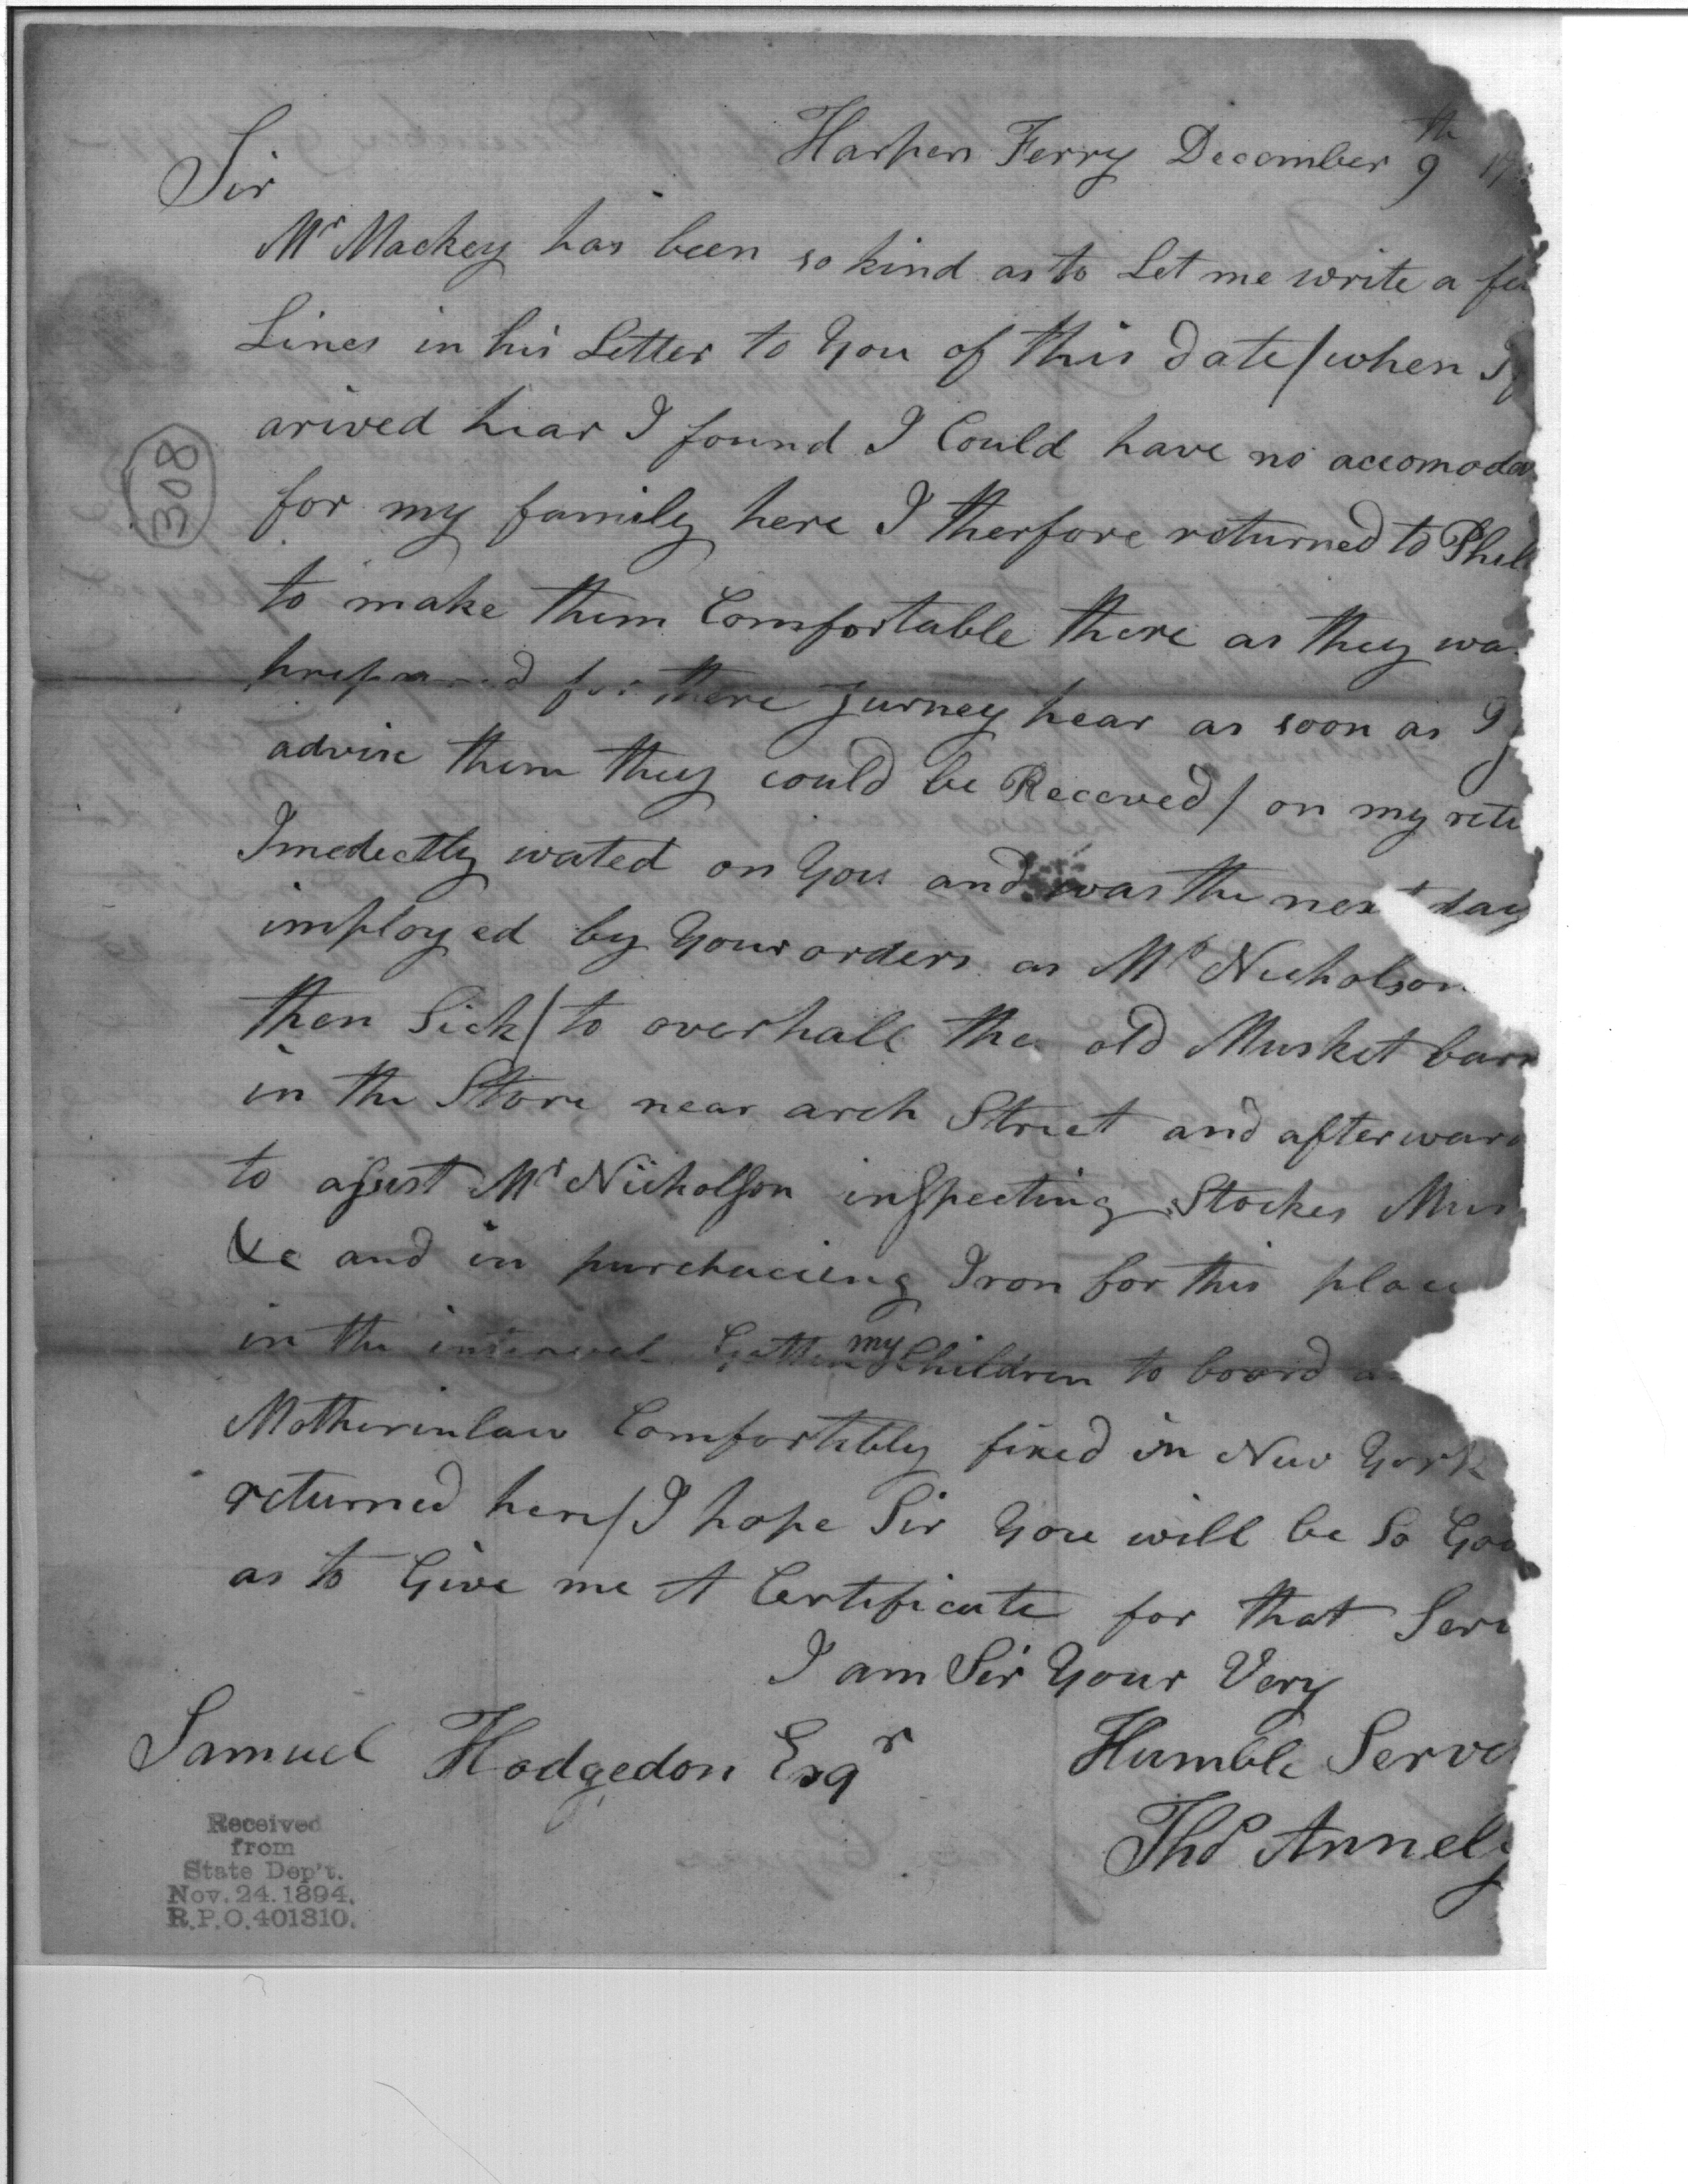 Harpers Ferry December 9th 17
Sir
Mr Mackey has been so kind as to Let me write a
Lines in his Letter to You of this date / when I
arived hear I found I Could have no accomoda
for my family here I therfore returned to Phil
to make them Comfortable there as they wa
prepared for there Jurney hear as soon as I
advise them they could be Receved / on my retu
Imedectly wated on You and was the next day
imployed by Your orders as Mr Nicholson
then Sick / to overhall the old Musket barr
in the Store near arch Street and afterward
to asist Mr Nicholson inspecting Stockes Mus
&c and in purchacieng Iron for this place
in the interval Gotten my Children to board
Motherinlaw Comfortably fixed in New York
returned here / I hope Sir You will be So Goo
as to Give me A Certificate for that Serv
I am Sir Your Very
Samuel Hodgedon Esqr
Humble Serva
Thos Annely
308
Received
from
State Dep't.
Nov. 24. 1894.
R.P.O. 401810.